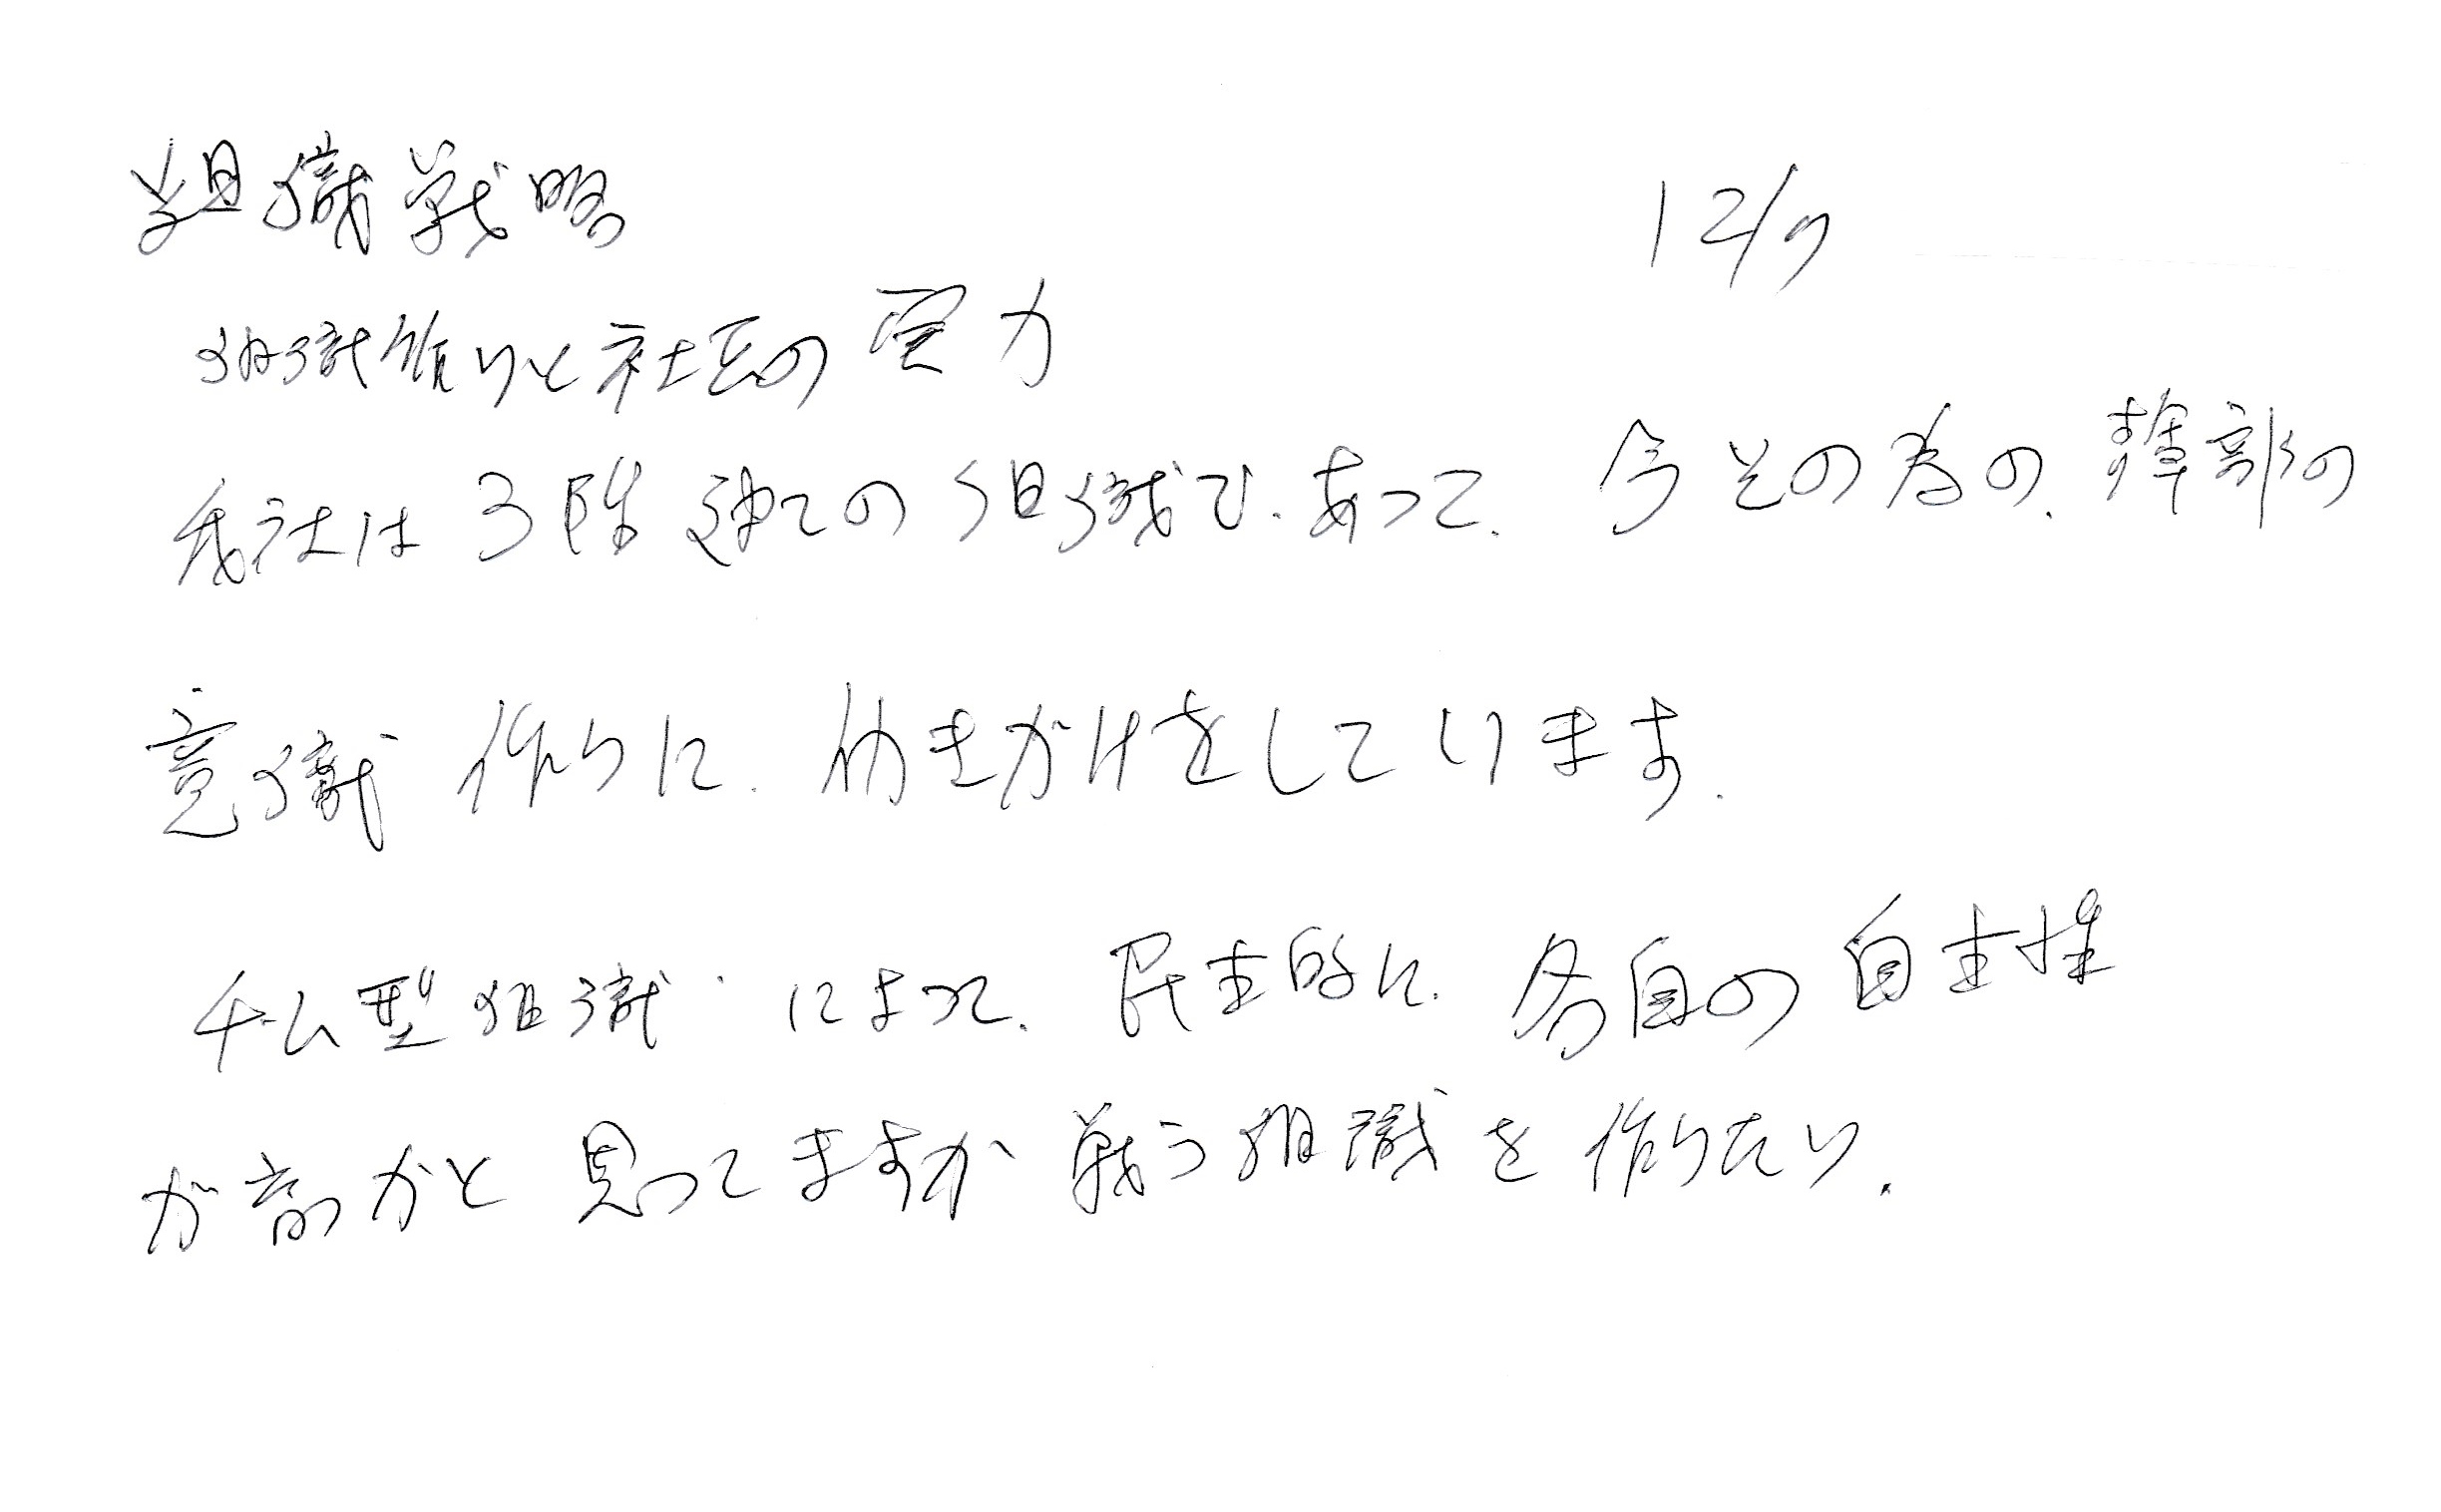 組織戦略 12/7
組織作りと社長の実力
我社は3階建ての組織で、あって、今その為の、幹部の
意識作りに、働きかけをしています。
チーム型組織によって、民主的に、各自の自主性
がかと思ってますが戦う組織を作りたい。